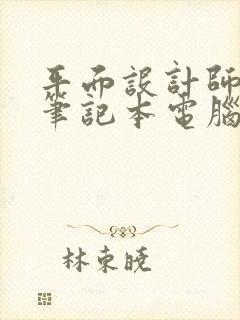 平面設計師
筆記本電腦
林東曉